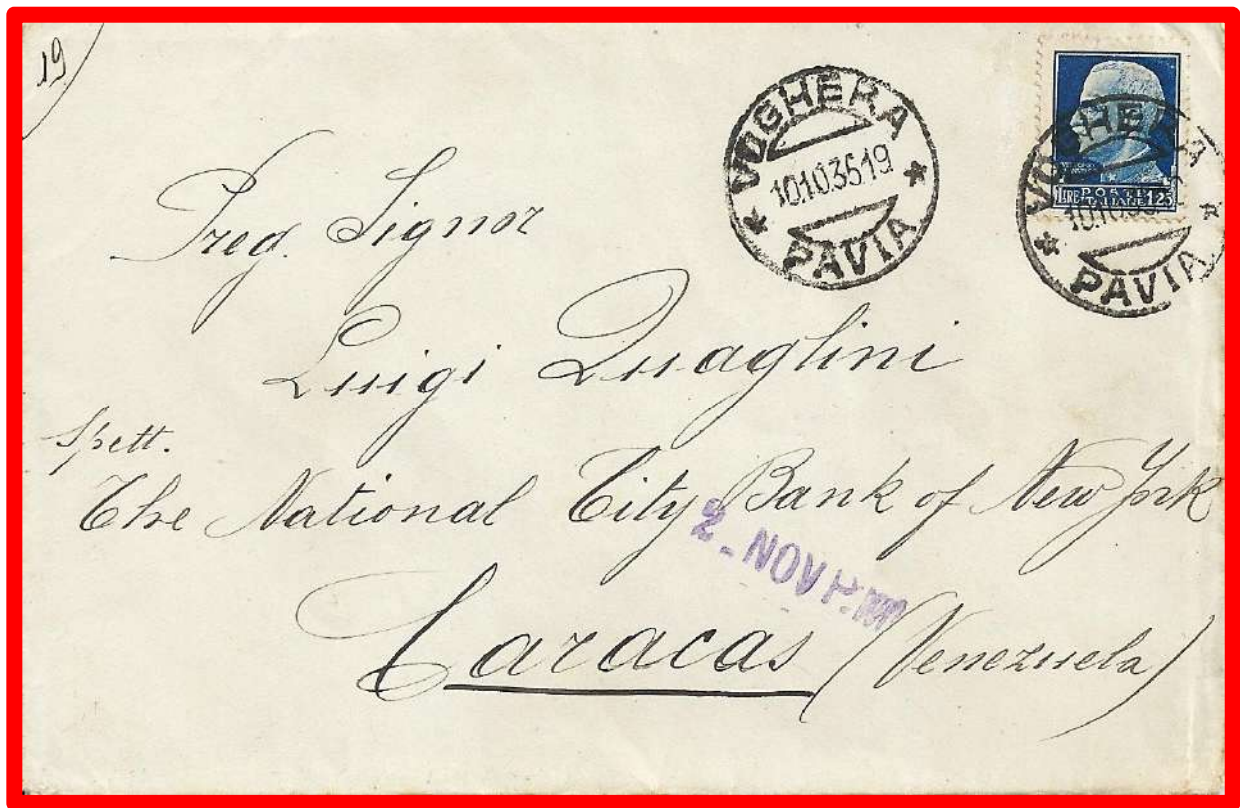 19
VOGHERA
10.10.35 19
PAVIA
VOGHERA
PAVIA
LIRE POSTE ITALIANE 1.25
Preg. Signor
Luigi Quaglini
Spett.
The National City Bank of New York
2 - NOV P.M
Caracas (Venezuela)